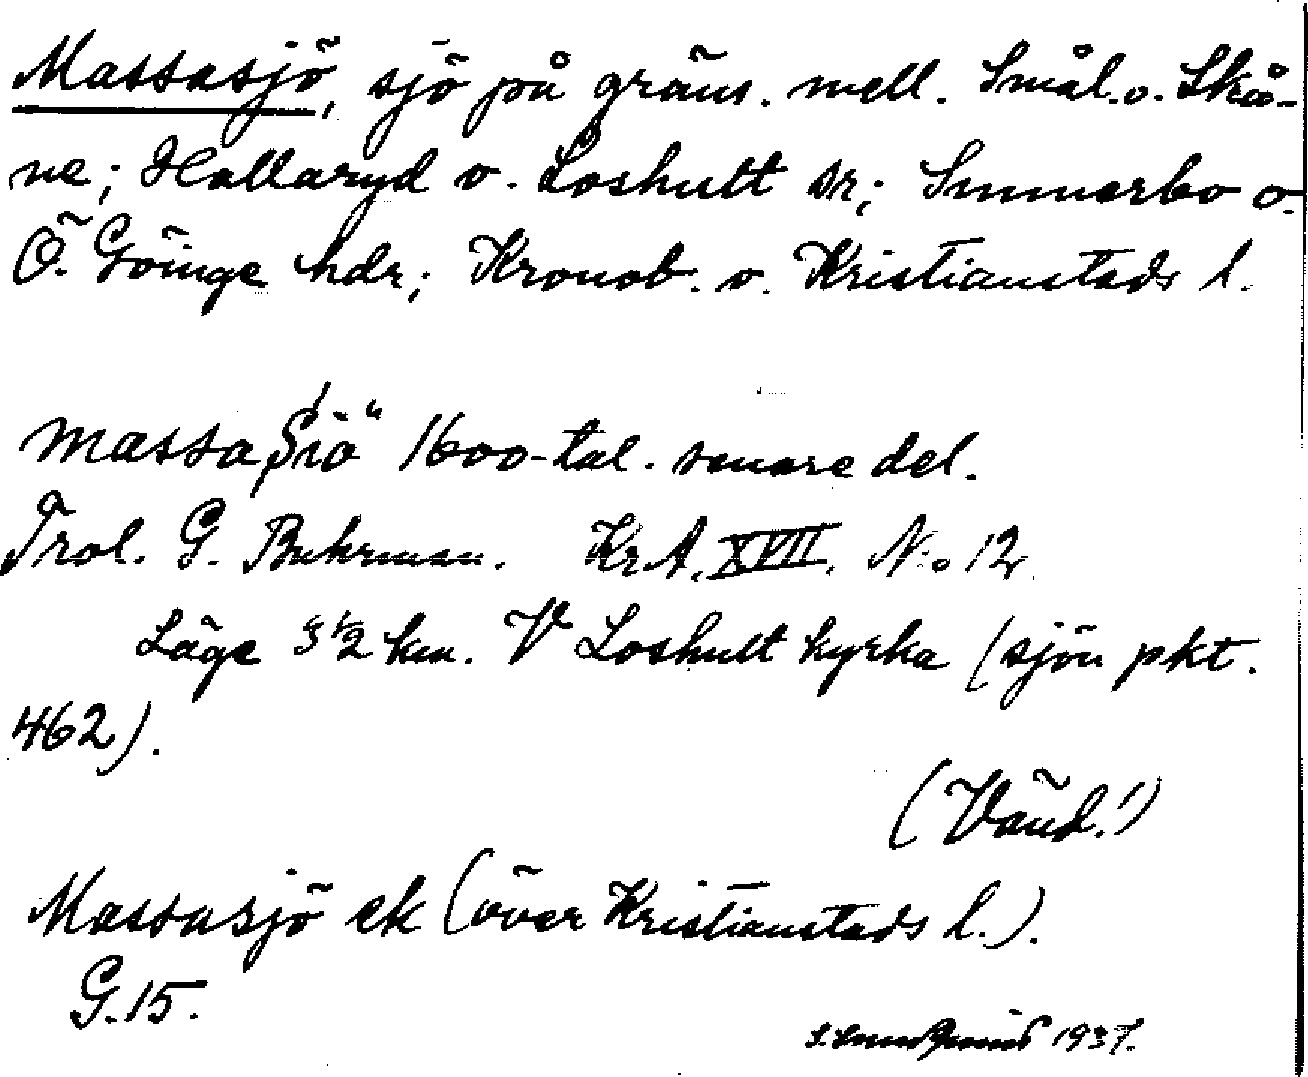 Massasjö, sjö på gräns. mell. Smål. o. Skå-
ne; Hallaryd o. Loshult sr; Sunnerbo o.
Ö. Göinge hdr; Kronob. o. Kristianstads l.
Massa Siö 1600-tal. senare del.
Trol. G. Buhrman. Kr.A. XVII. N:o 12
Läge 3 1/2 km. V Loshult kyrka (sjön pkt.
462).
(Vänd!)
Massasjö ek (över Kristianstads l.).
G. 15.
1937.